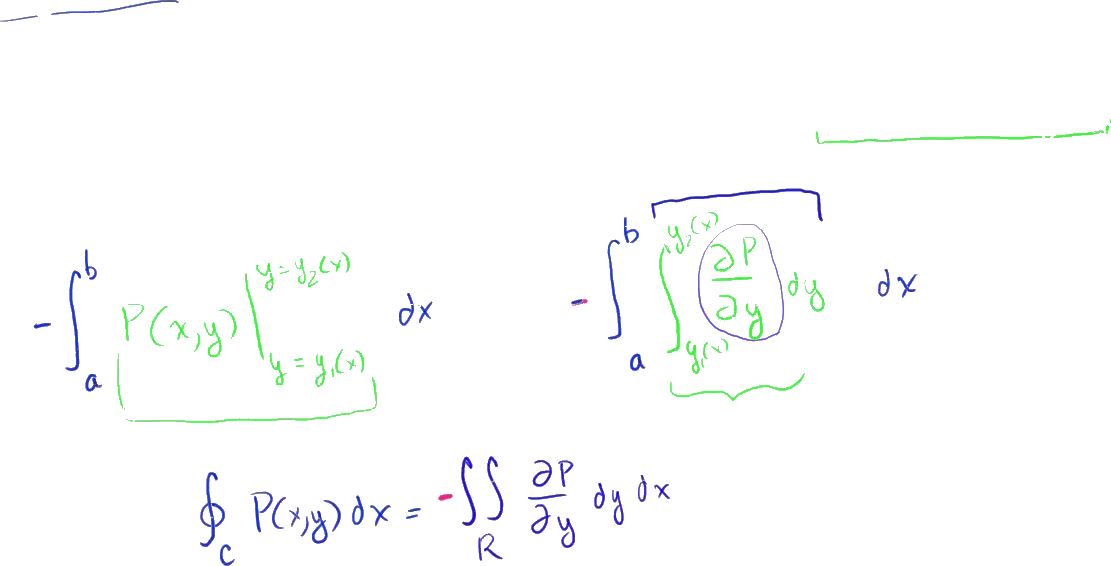 -∫_a^b P(x,y) |_{y=y₁(x)}^{y=y₂(x)} dx
-∫_a^b ∫_{y₁(x)}^{y₂(x)} ∂P/∂y dy dx
∮_C P(x,y) dx = -∬_R ∂P/∂y dy dx